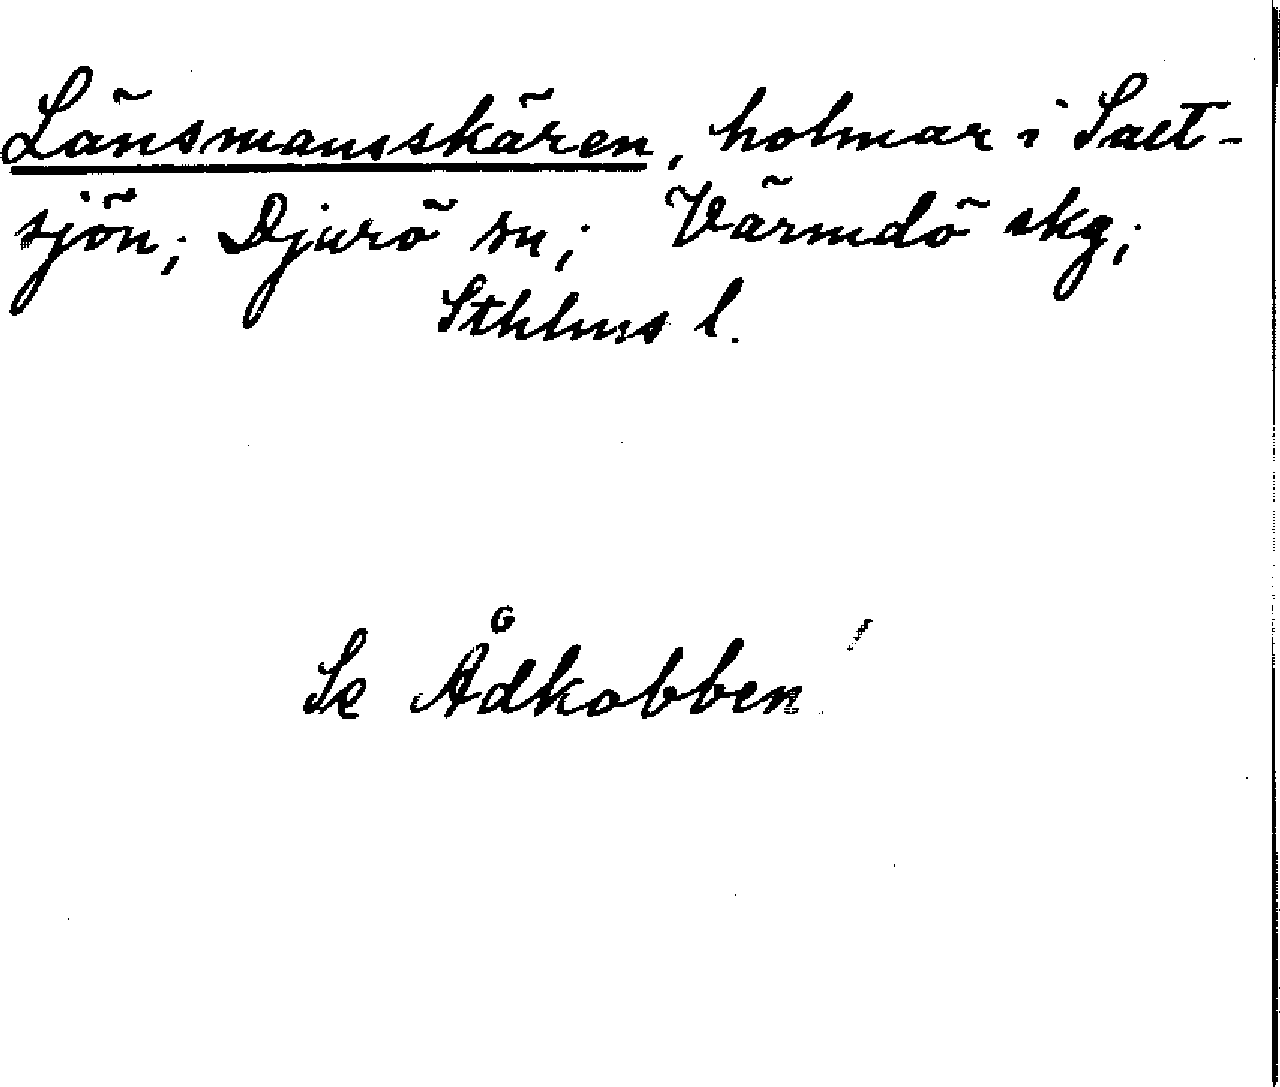 Länsmansskären, holmar i Salt-
sjön; Djurö sn; Värmdö skg;
Sthlms l.
Se Ådkobben!